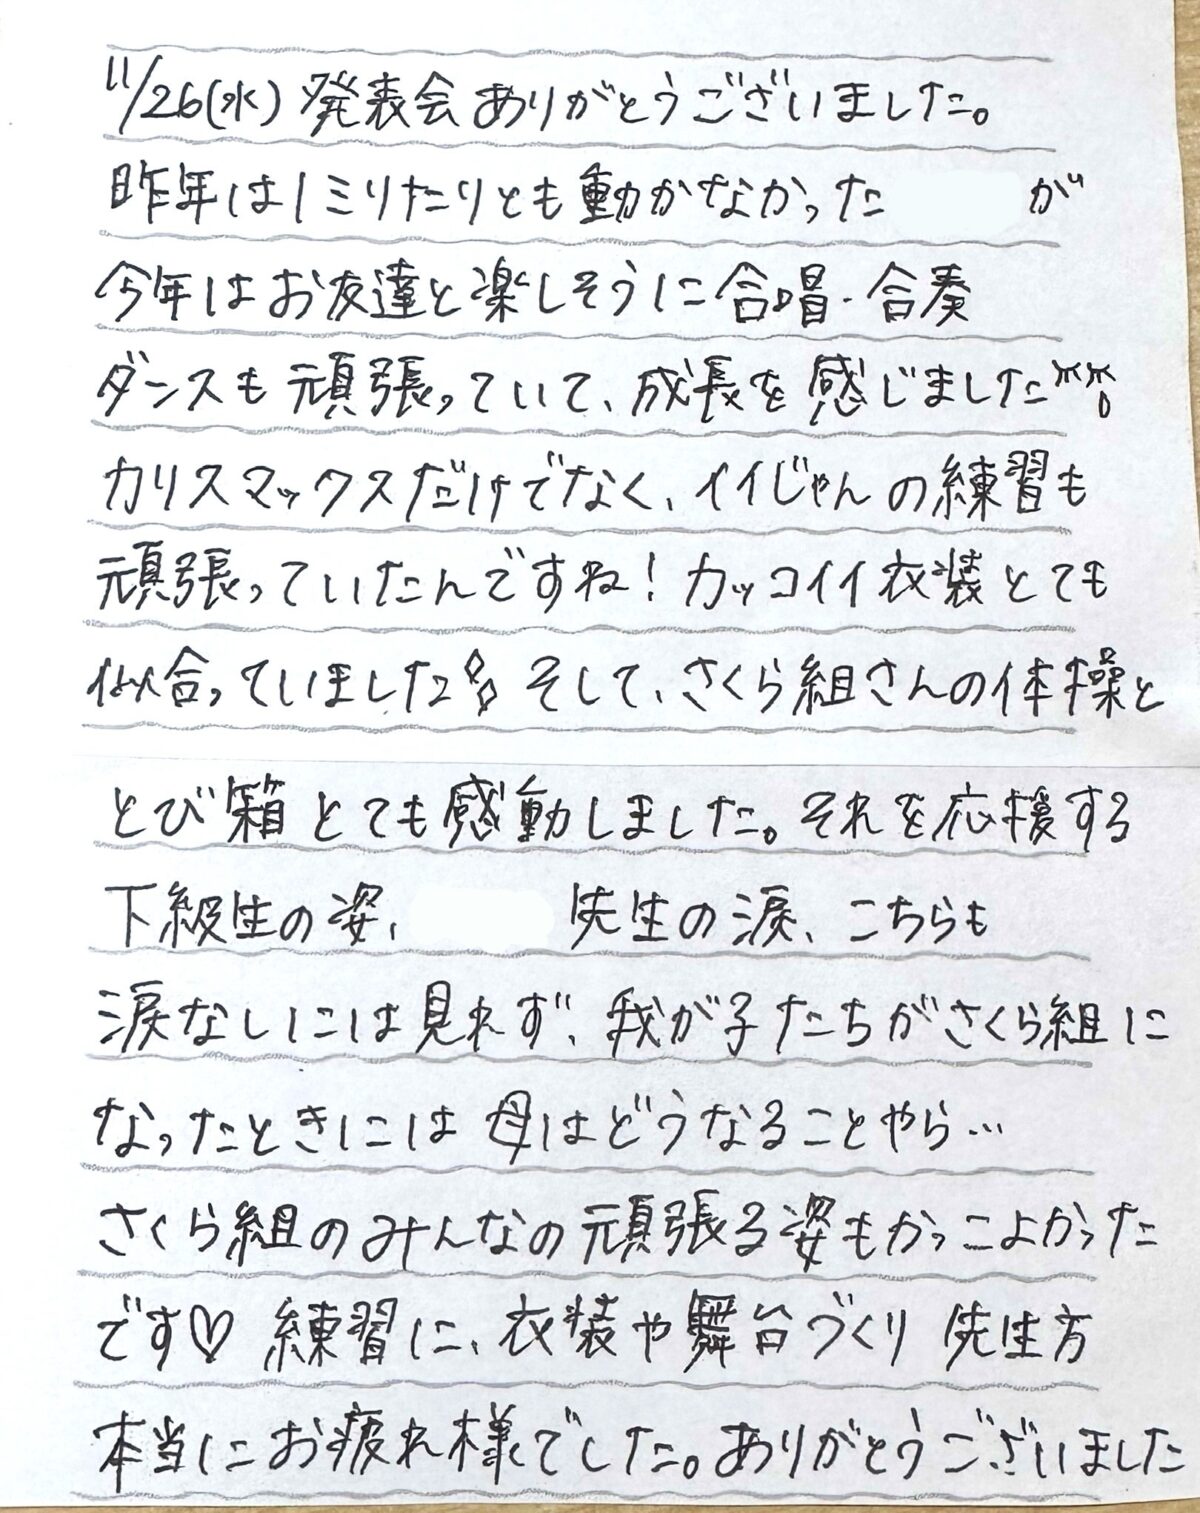 11/26(水) 発表会ありがとうございました。
昨年は1ミリたりとも動かなかった が
今年はお友達と楽しそうに合唱・合奏
ダンスも頑張っていて、成長を感じました
カリスマックスだけでなく、イイじゃんの練習も
頑張っていたんですね!カッコイイ衣装とても
似合っていました そして、さくら組さんの体操と
とび箱とても感動しました。それを応援する
下級生の姿、 先生の涙、こちらも
涙なしには見れず、我が子たちがさくら組に
なったときには母はどうなることやら…
さくら組のみんなの頑張る姿もかっこよかった
です♡ 練習に、衣装や舞台づくり 先生方
本当にお疲れ様でした。ありがとうございました